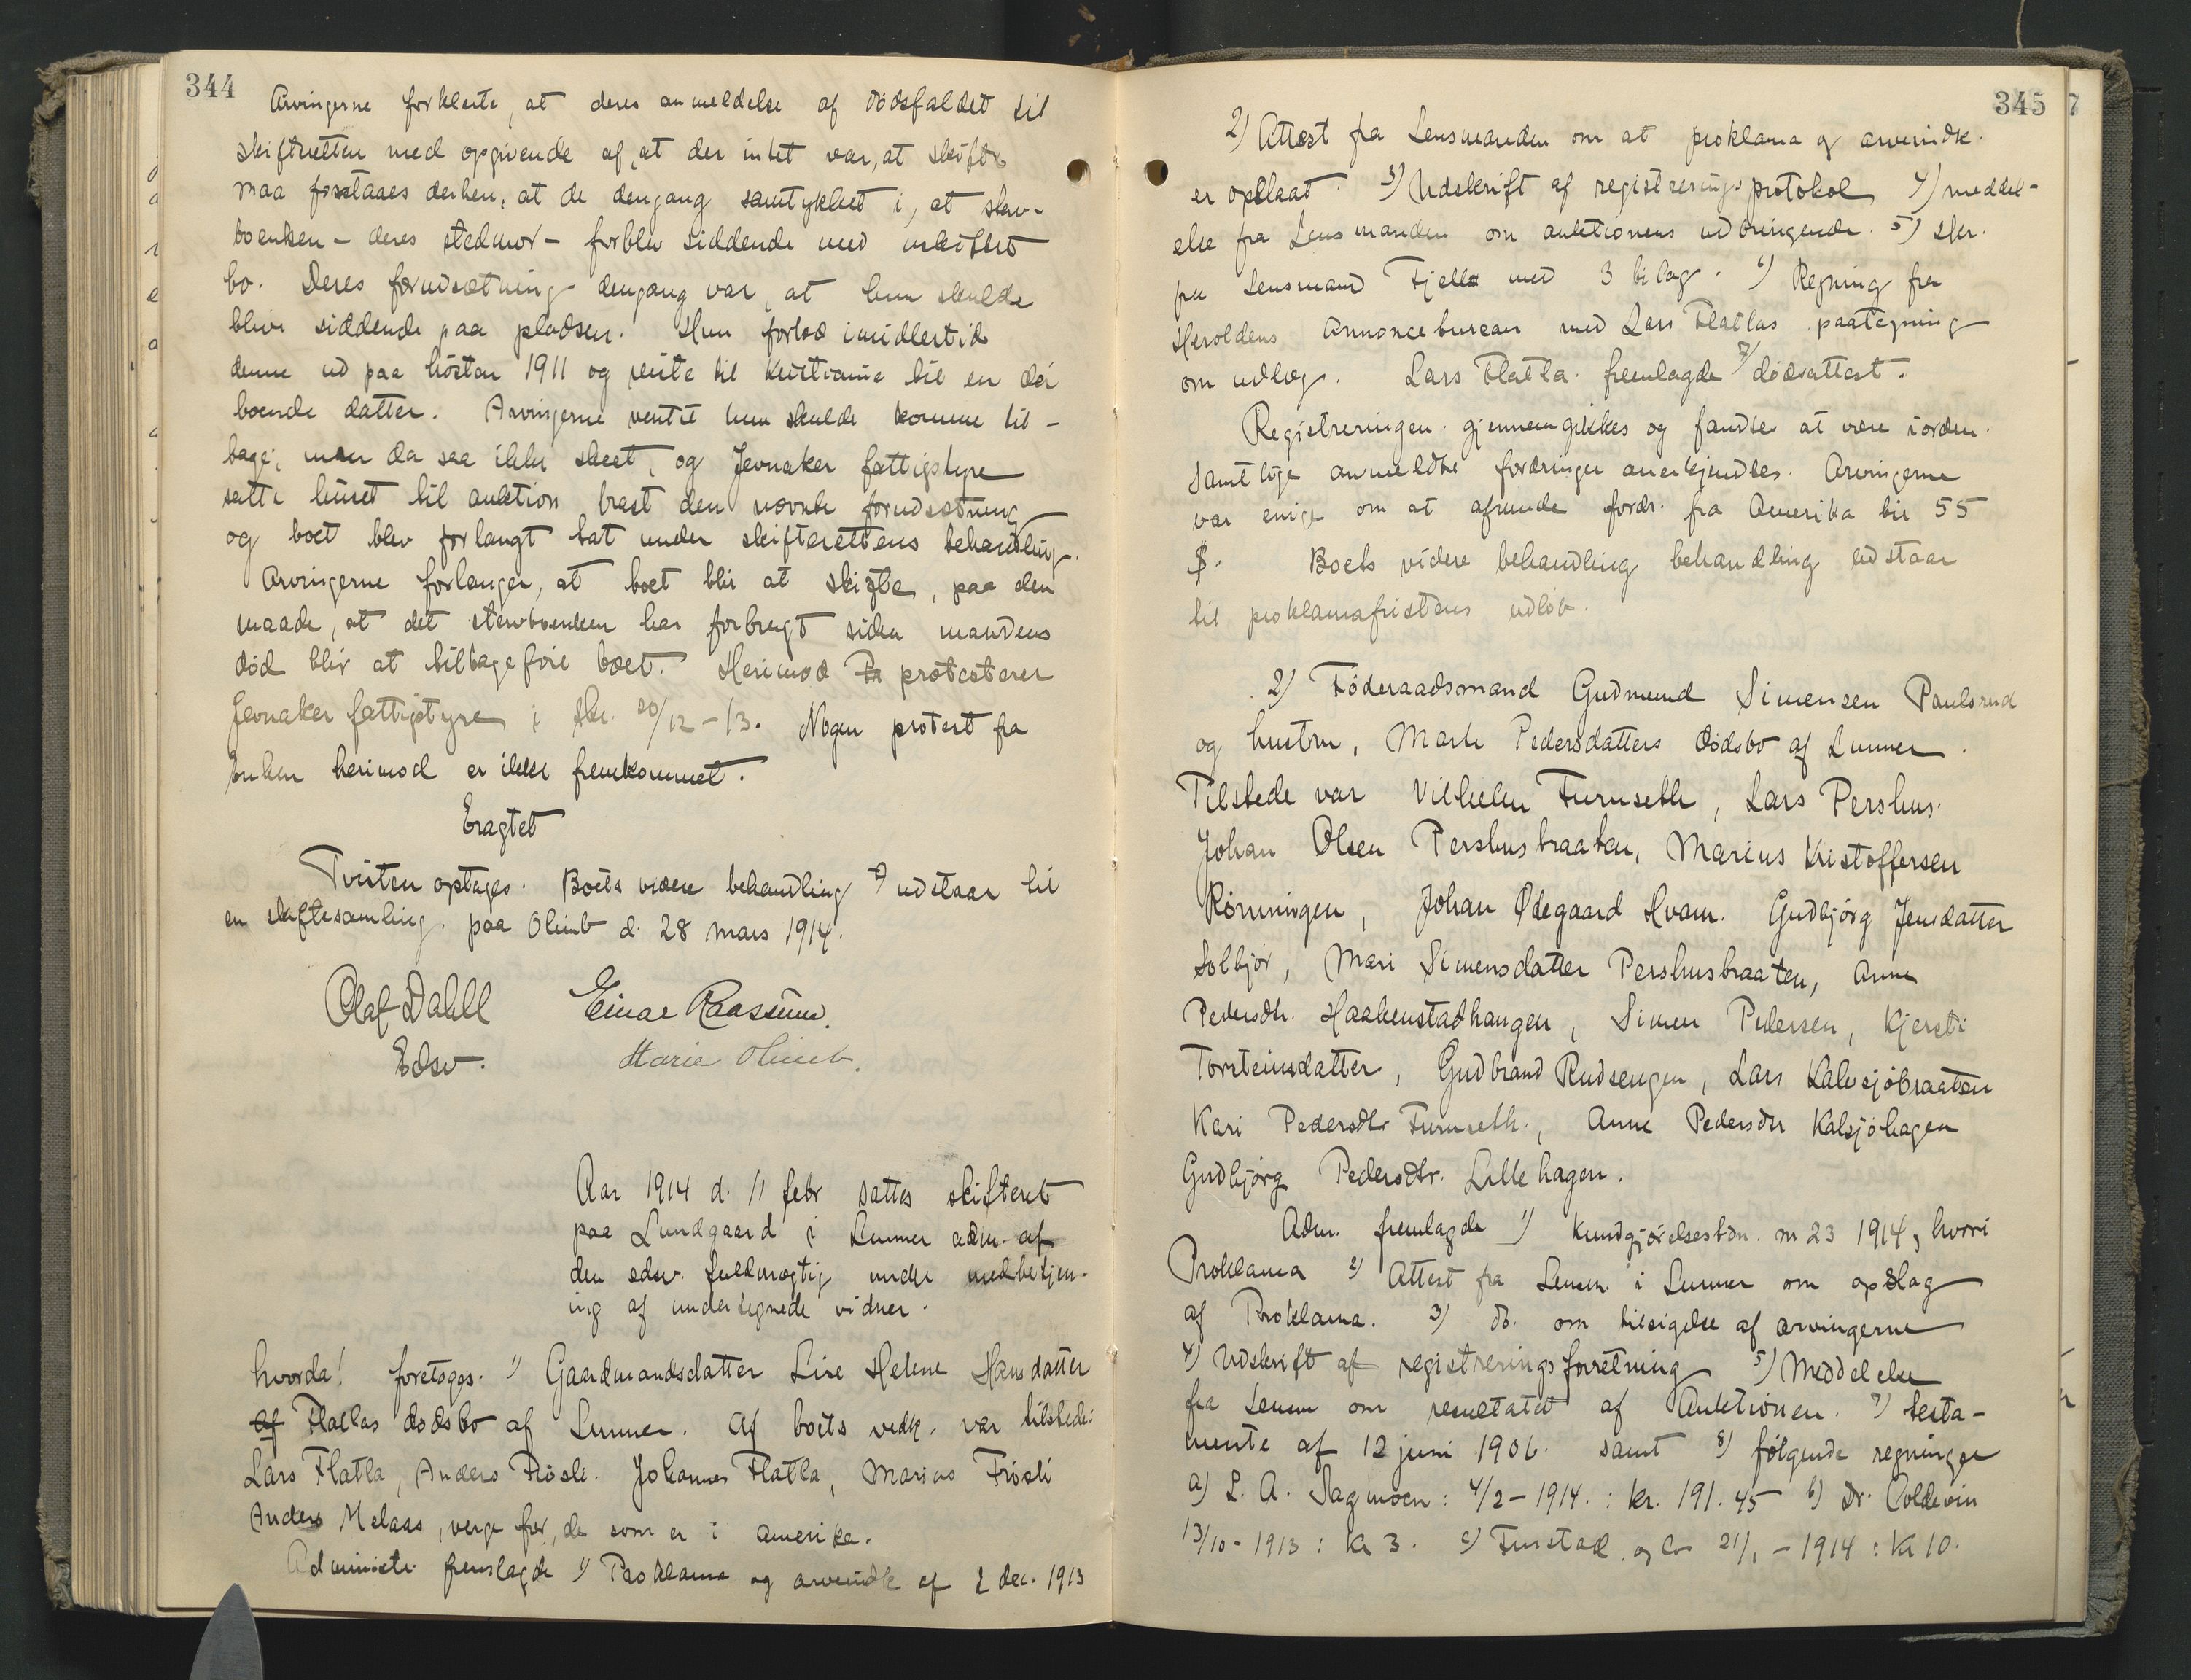 344
Arvingerne forklarte, at deres anmeldelse af dödsfaldet til
skifteretten med opgivende af, at der intet var, at skifte
maa forstaaes derhen, at de dengang samtykket i, at sterv-
boenken – deres stedmor – forblev siddende med uskiftet
bo. Deres forudsætning dengang var, at hun skulde
blive siddende paa pladsen. Hun forlod imidlertid
denne ud paa hösten 1911 og reiste til Kristiania til en der
boende datter. Arvingerne ventet hun skulde komme til-
bage; men da saa ikke skeet, og Jevnaker fattigstyre
satte huset til auktion brast den nævnte forudsætning
og boet blev forlangt tat under skifterettens behandling.
Arvingerne forlanger, at boet blir at skifte, paa den
maade, at det stervboenken har forbrugt siden mandens
död blir at tilbageföre boet. Herimod protesterer
Jevnaker fattigstyre i skr. 20/12-13. Nogen protest fra
enken herimod er ikke fremkommet.
Eragtet
Tvisten optages. Boets videre behandling udstaar til
en skiftesamling paa Olimb d. 28 mars 1914.
Olaf Dahll Einar Raassum.
Edsv. Marie Olimb.
Aar 1914 d. 11 febr sattes skifteret
paa Lundgaard i Lunner adm. af
den edsv. fuldmægtig under medbetjen-
ing af undertegnede vidner.
hvorda! foretoges. 1) Gaardmandsdatter Lise Helene Hansdatter
af Flatlas dödsbo af Lunner. Af boets vedk. var tilstede:
Lars Flatla, Anders Frösli. Johannes Flatla, Marius Frösli
Anders Melaas, verge for, de som er i Amerika.
Administr. fremlagde 1) Proklama og arveindk af 2 dec. 1913
345
2) Attest fra Lensmanden om at proklama og arveindk.
er opslaat. 3) Udskrift af registreringsprotokol 4) meddel-
else fra Lensmanden om auktionens udbringende. 5) skr.
fra Lensmand Fjella med 3 bilag. 6) Regning fra
Heroldens Annoncebureau med Lars Flatlas paategning
om udlæg. Lars Flatla fremlagde 7) dödsattest.
Registreringen gjennemgikkes og fandtes at være iorden.
Samtlige anmeldte fordringer anerkjendtes. Arvingerne
var enige om at afrunde fordr. fra Amerika til 55
$. Boets videre behandling behandling udstaar
til proklamafristens udlöb.
2) Föderaadsmand Gudmund Simensen Paulsrud
og hustru, Marte Pedersdatters dödsbo af Lunner.
Tilstede var Vilhelm Furuseth, Lars Pershus
Johan Olsen Pershusbraaten, Marius Kristoffersen
Rönningen, Johan Ødegaard Hvam. Gudbjörg Jensdatter
Solbjör, Mari Simensdatter Pershusbraaten, Anne
Pedersdtr. Haakenstadhaugen, Simen Pedersen, Kjersti
Torsteinsdatter, Gudbrand Rudsengen, Lars Kalvsjöbraaten
Kari Pedersdtr Furuseth., Anne Pedersdtr Kalsjöhagen
Gudbjörg Pedersdtr. Lillehagen.
Adm. fremlagde 1) Kundgjörelsestdn. nr 23 1914, hvori
Proklama 2) Attest fra Lensm. i Lunner om opslag
af Proklama. 3) do. om tilsigelse af arvingerne
4) Udskrift af registreringsforretning 5) Meddelelse
fra Lensm om resultatet af Auktionen. 7) testa-
mente af 12 juni 1906. samt 8) følgende regninger
a) L. A. Dagmoen: 4/2-1914.: kr. 191.45 b) Dr. Coldevin
13/10-1913: kr 3. c) Funstad og Co 21/1-1914: Kr 10.